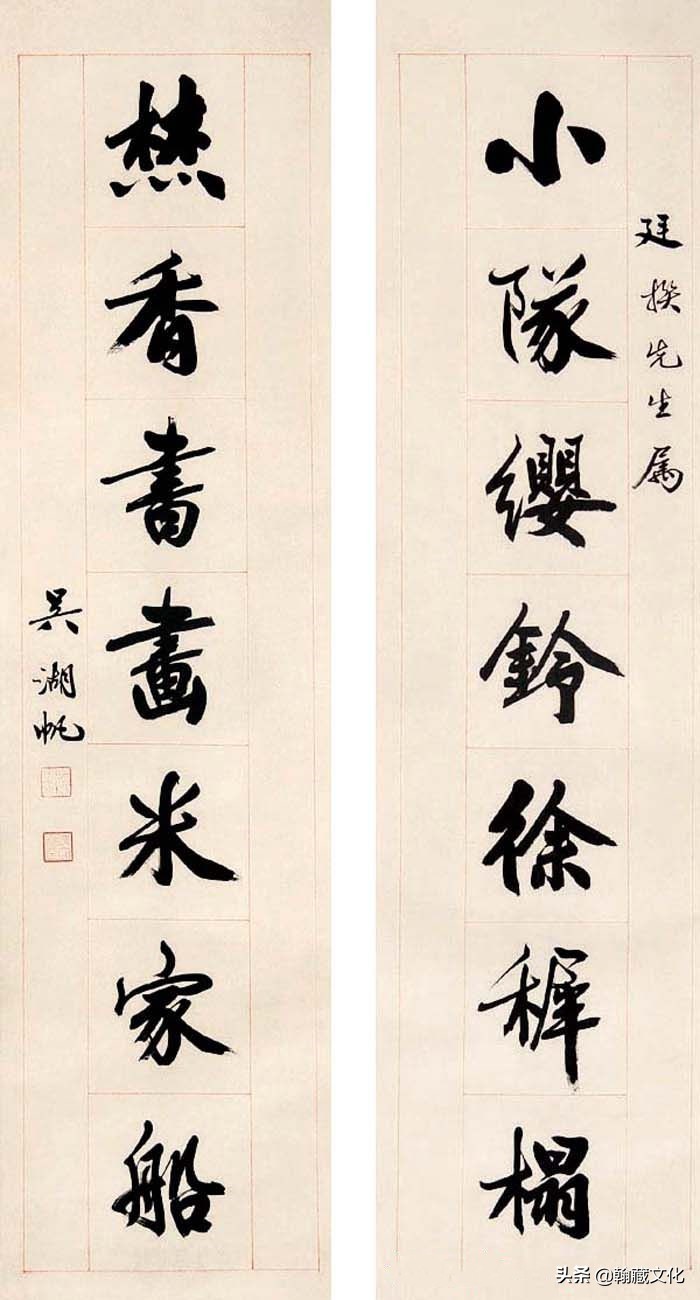 廷揆先生属
小隊纓鈴徐穉榻
焚香書畫米家船
吴湖帆
头条 @翰藏文化